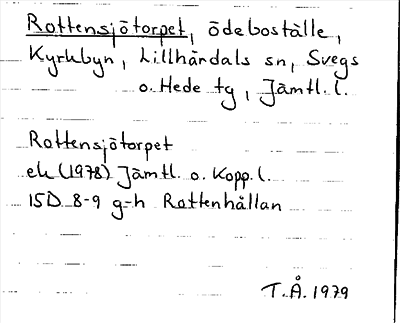 Rottensjötorpet, ödeboställe,
Kyrkbyn, Lillhärdals sn, Svegs
o. Hede tg, Jämtl. l.
Rottensjötorpet
ek (1978) Jämtl. o. Kopp. l.
15D 8-9 g-h Rottenhållan
T.Å. 1979